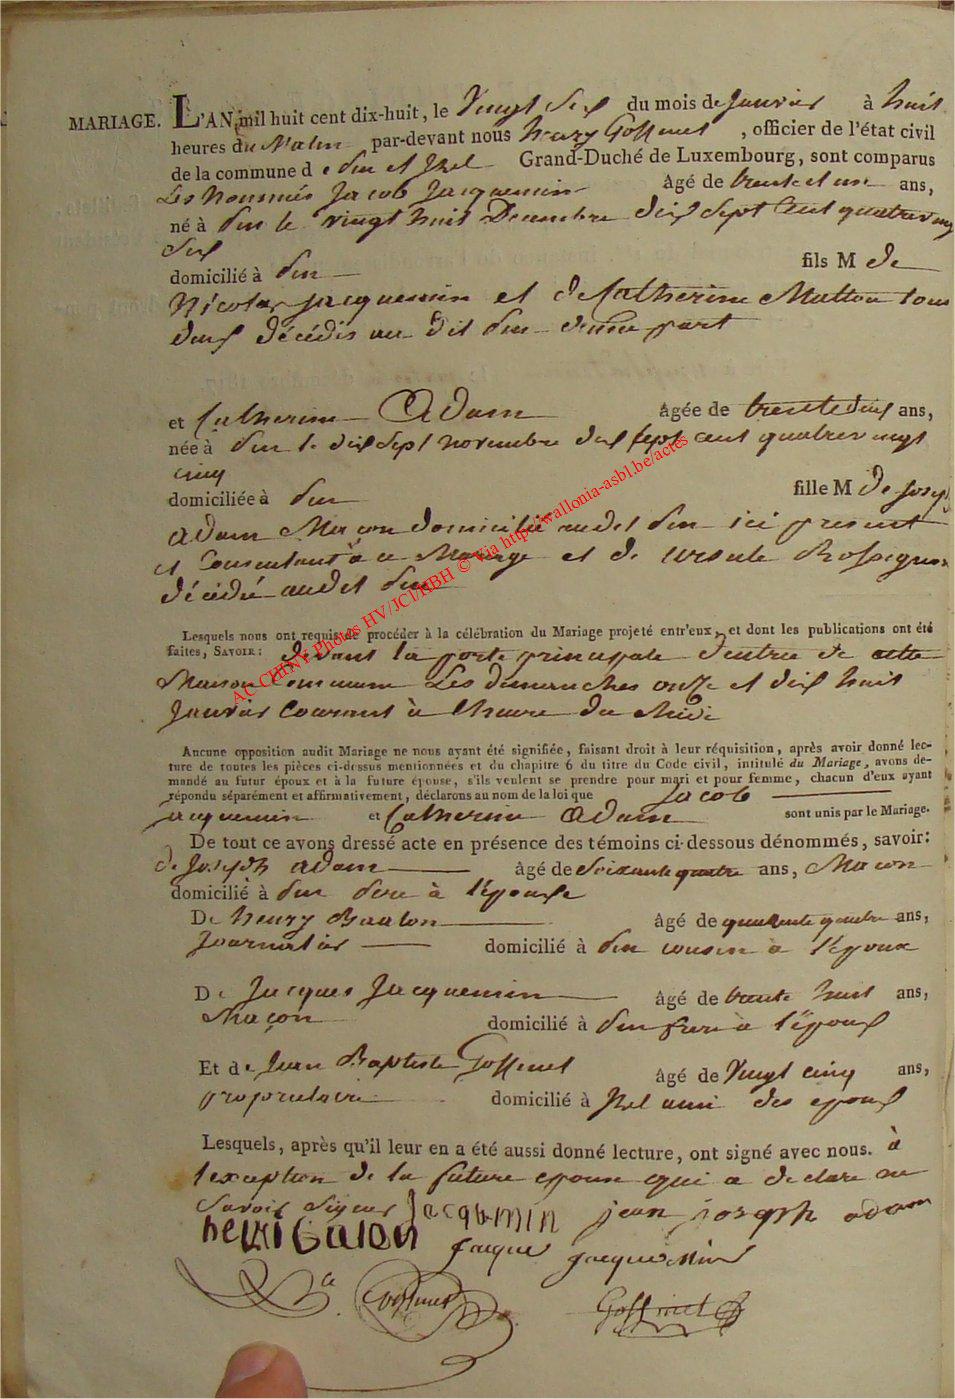 MARIAGE. L'AN mil huit cent dix-huit, le Vingt Six du mois de Janvier à huit
heures du Matin par-devant nous henry Goffinet, officier de l'état civil
de la commune de Suxy et Izel Grand-Duché de Luxembourg, sont comparus
Les Nommés Jacob Jacquemin âgé de trente et un ans,
né à le vingt huit Decembre dix Sept Cent quatre vingt
Six
domicilié à fils M de
Nicolas Jacquemin et de Catherine Mutton tous
deux décédés au dit d'une part
et Catherine Adam âgée de trente deux ans,
née à le dix Sept novembre dix Sept cent quatre vingt
cinq
domiciliée à fille M de Joseph
Adam Maçon domicilié audit ici présent
et Consentant à ce Mariage et de Ursule Rossignon
décédé audit
Lesquels nous ont requis de procéder à la célébration du Mariage projeté entr'eux, et dont les publications ont été
faites, SAVOIR: devant la porte principale d'entrée de cette
Maison Commune Les dimanches onze et dix huit
Janvier Courant à l'heure de Midi
Aucune opposition audit Mariage ne nous ayant été signifiée, faisant droit à leur réquisition, après avoir donné lec-
ture de toutes les pièces ci-dessus mentionnées et du chapitre 6 du titre du Code civil, intitulé du Mariage, avons de-
mandé au futur époux et à la future épouse, s'ils veulent se prendre pour mari et pour femme, chacun d'eux ayant
répondu séparément et affirmativement, déclarons au nom de la loi que Jacob
Jacquemin et Catherine Adam sont unis par le Mariage.
De tout ce avons dressé acte en présence des témoins ci-dessous dénommés, savoir:
de Joseph Adam âgé de Soixante quatre ans, Maçon
domicilié à père à l'épouse
De henry Baulon âgé de quarante quatre ans,
Journalier domicilié à cousin à l'époux
De Jacques Jacquemin âgé de trente huit ans,
Maçon domicilié à frère à l'époux
Et de Jean Baptiste Goffinet âgé de Vingt cinq ans,
propriétaire domicilié à Izel ami des époux
Lesquels, après qu'il leur en a été aussi donné lecture, ont signé avec nous. à
l'exception de la future épouse qui a déclaré ne
Savoir Signer Jacqumin jean joseph adam
henri jacque jacquemin
Goffinet Goffinet
AC CHINY Photos HV/JCl/HBH © Via http://wallonia-asbl.be/actes